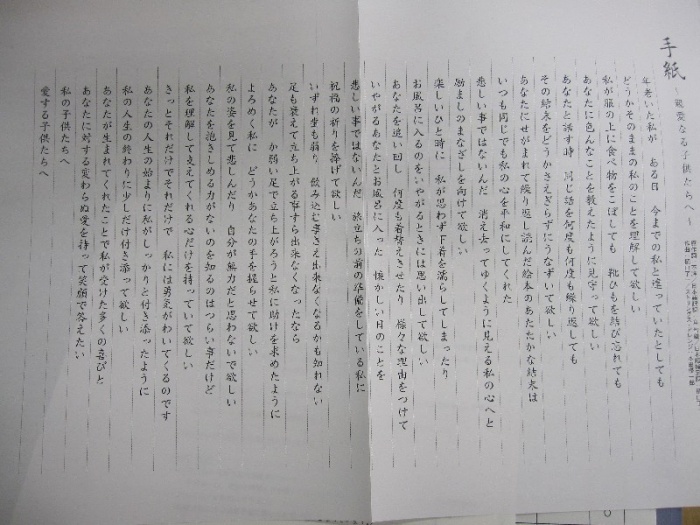 手紙
～親愛なる子供たちへ～
年老いた私が ある日 今までの私と違っていたとしても
どうかそのままの私のことを理解して欲しい
私が服の上に食べ物をこぼしても 靴ひもを結び忘れても
あなたに色んなことを教えたように見守って欲しい
あなたと話す時 同じ話を何度も何度も繰り返しても
その結末をどうかさえぎらずにうなずいて欲しい
あなたにせがまれて繰り返し読んだ絵本のあたたかな結末は
いつも同じでも私の心を平和にしてくれた
悲しい事ではないんだ 消え去ってゆくように見える私の心へと
励ましのまなざしを向けて欲しい
楽しいひと時に 私が思わず下着を濡らしてしまったり
お風呂に入るのをいやがるときには思い出して欲しい
あなたを追い回し 何度も着替えさせたり 様々な理由をつけて
いやがるあなたとお風呂に入った 懐かしい日のことを
悲しい事ではないんだ 旅立ちの前の準備をしている私に
祝福の祈りを捧げて欲しい
いずれ歯も弱り 飲み込む事さえ出来なくなるかも知れない
足も衰えて立ち上がる事すら出来なくなったなら
あなたが か弱い足で立ち上がろうと私に助けを求めたように
よろめく私に どうかあなたの手を握らせて欲しい
私の姿を見て悲しんだり 自分が無力だと思わないで欲しい
あなたを抱きしめる力がないのを知るのはつらい事だけど
私を理解して支えてくれる心だけを持っていて欲しい
きっとそれだけでそれだけで 私には勇気がわいてくるのです
あなたの人生の始まりに私がしっかりと付き添ったように
私の人生の終わりに少しだけ付き添って欲しい
あなたが生まれてくれたことで私が受けた多くの喜びと
あなたに対する変わらぬ愛を持って笑顔で答えたい
私の子供たちへ
愛する子供たちへ